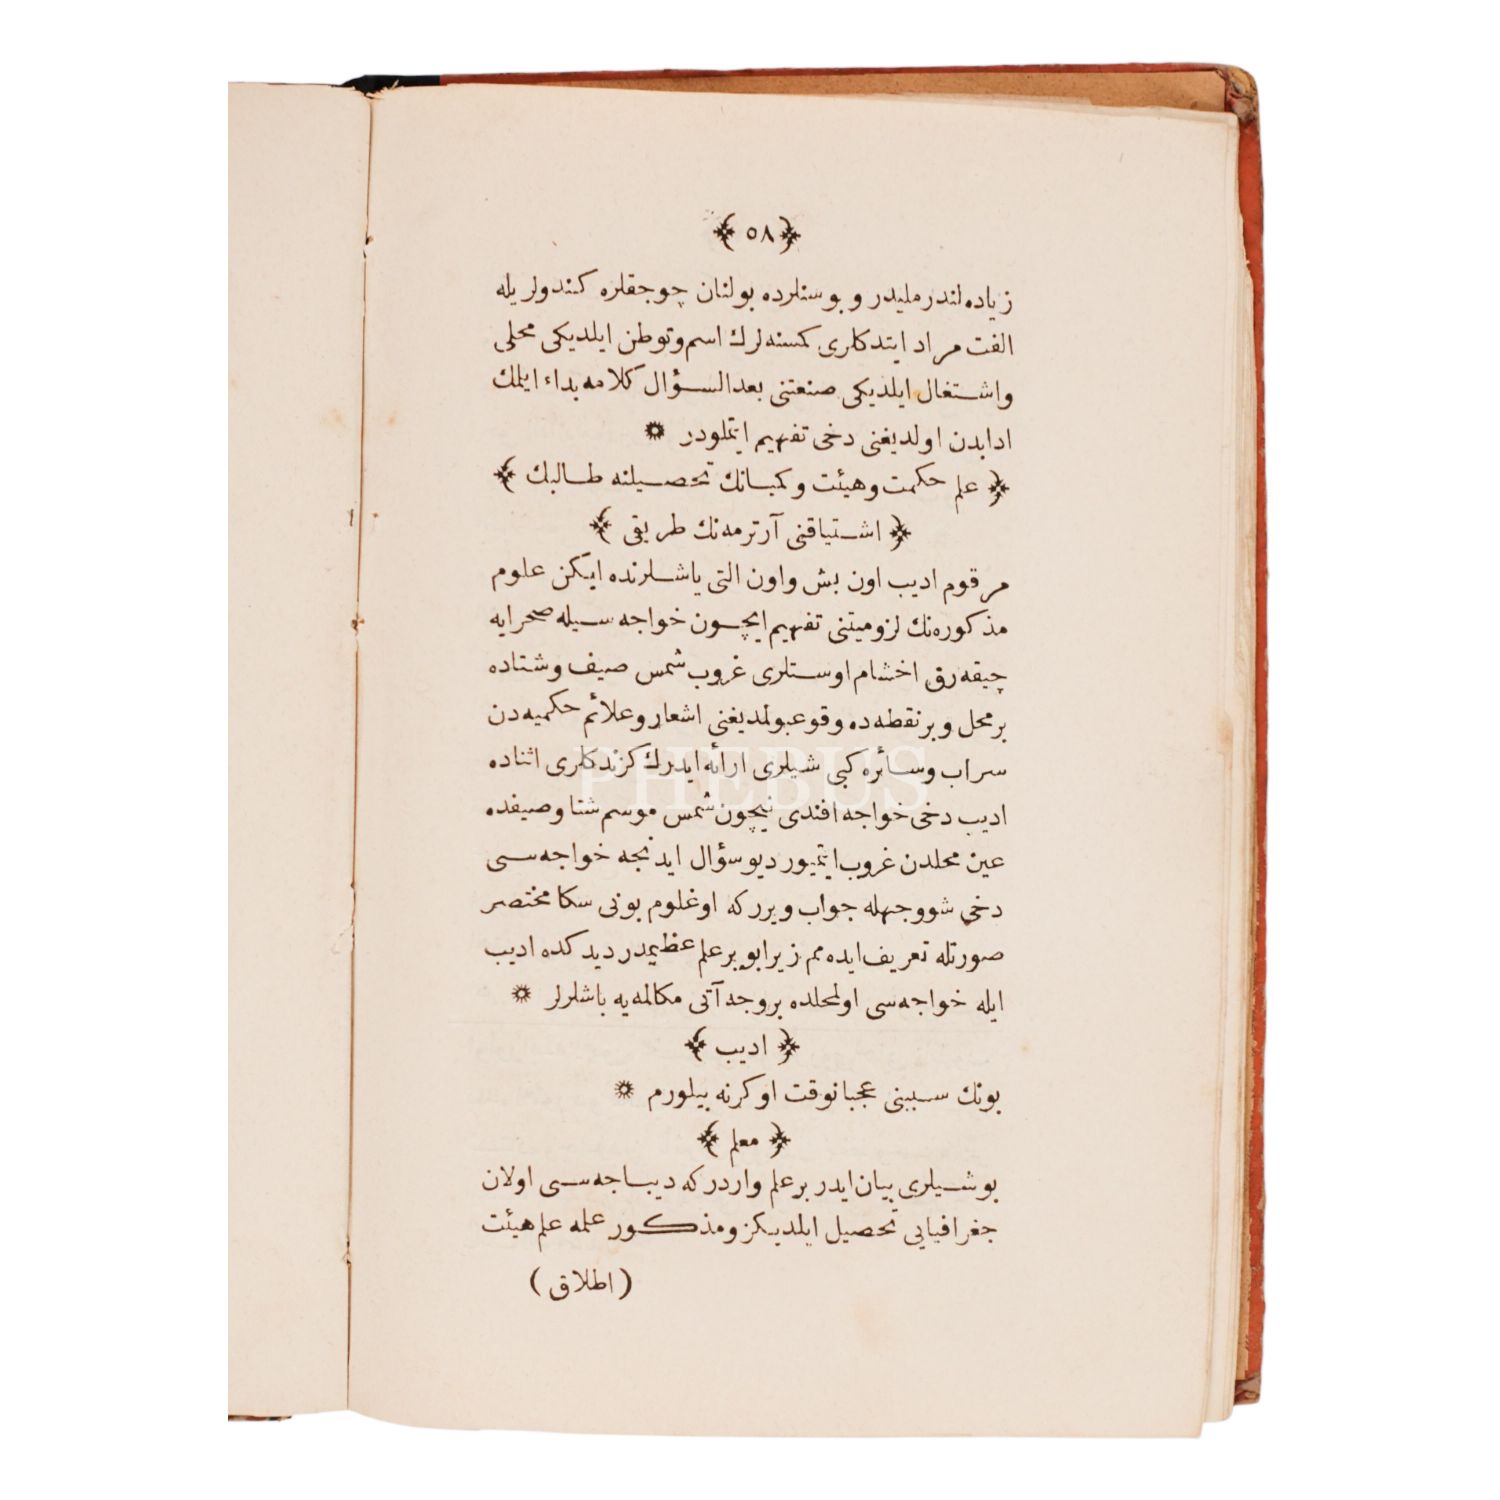 ﴿ ٥٨ ﴾
زیاده‌لندرملیدر و بو سنلرده بولنان چوجقلره کندولریله
الفت مراد ایتدکلری کمسنه‌لرك اسم وتوطن ایلدیکی محلی
واشتغال ایلدیکی صنعتنی بعدالسؤال کلامه بداء ایلمك
ادابدن اولدیغنی دخی تفهیم ایتملودر *
﴿ علم حکمت وهیئت وکمیانك تحصیلنه طالبك ﴾
﴿ اشتیاقنی آرترمه‌نك طریقی ﴾
مرقوم ادیب اون بش واون التی یاشلرنده ایکن علوم
مذکوره‌نك لزومیتنی تفهیم ایچون خواجه سیله صحرایه
چیقه‌رق اخشام اوستلری غروب شمس صیف وشتاده
بر محل وبر نقطه‌ده وقوعبولمدیغنی اشعار وعلائم حکمیه‌دن
سراب وسائره کبی شیلری ارائه ایدرك کزندکلری اثناده
ادیب دخی خواجه افندی نیچون شمس موسم شتا وصیفده
عین محلدن غروب ایتمیور دیو سؤال ایدنجه خواجه‌سی
دخی شو وجهله جواب ویررکه اوغلوم بونی سکا مختصر
صورتله تعریف ایده‌مم زیرا بو بر علم عظیمدر دیدکده ادیب
ایله خواجه‌سی اولمحلده بروجه آتی مکالمه‌یه باشلرلر *
﴿ ادیب ﴾
بونك سببنی عجبا نوقت اوکرنه بیلورم *
﴿ معلم ﴾
بو شیلری بیان ایدر بر علم واردرکه دیباجه‌سی اولان
جغرافیایی تحصیل ایلدیکز ومذکور علمه علم هیئت
( اطلاق )
PHEBUS